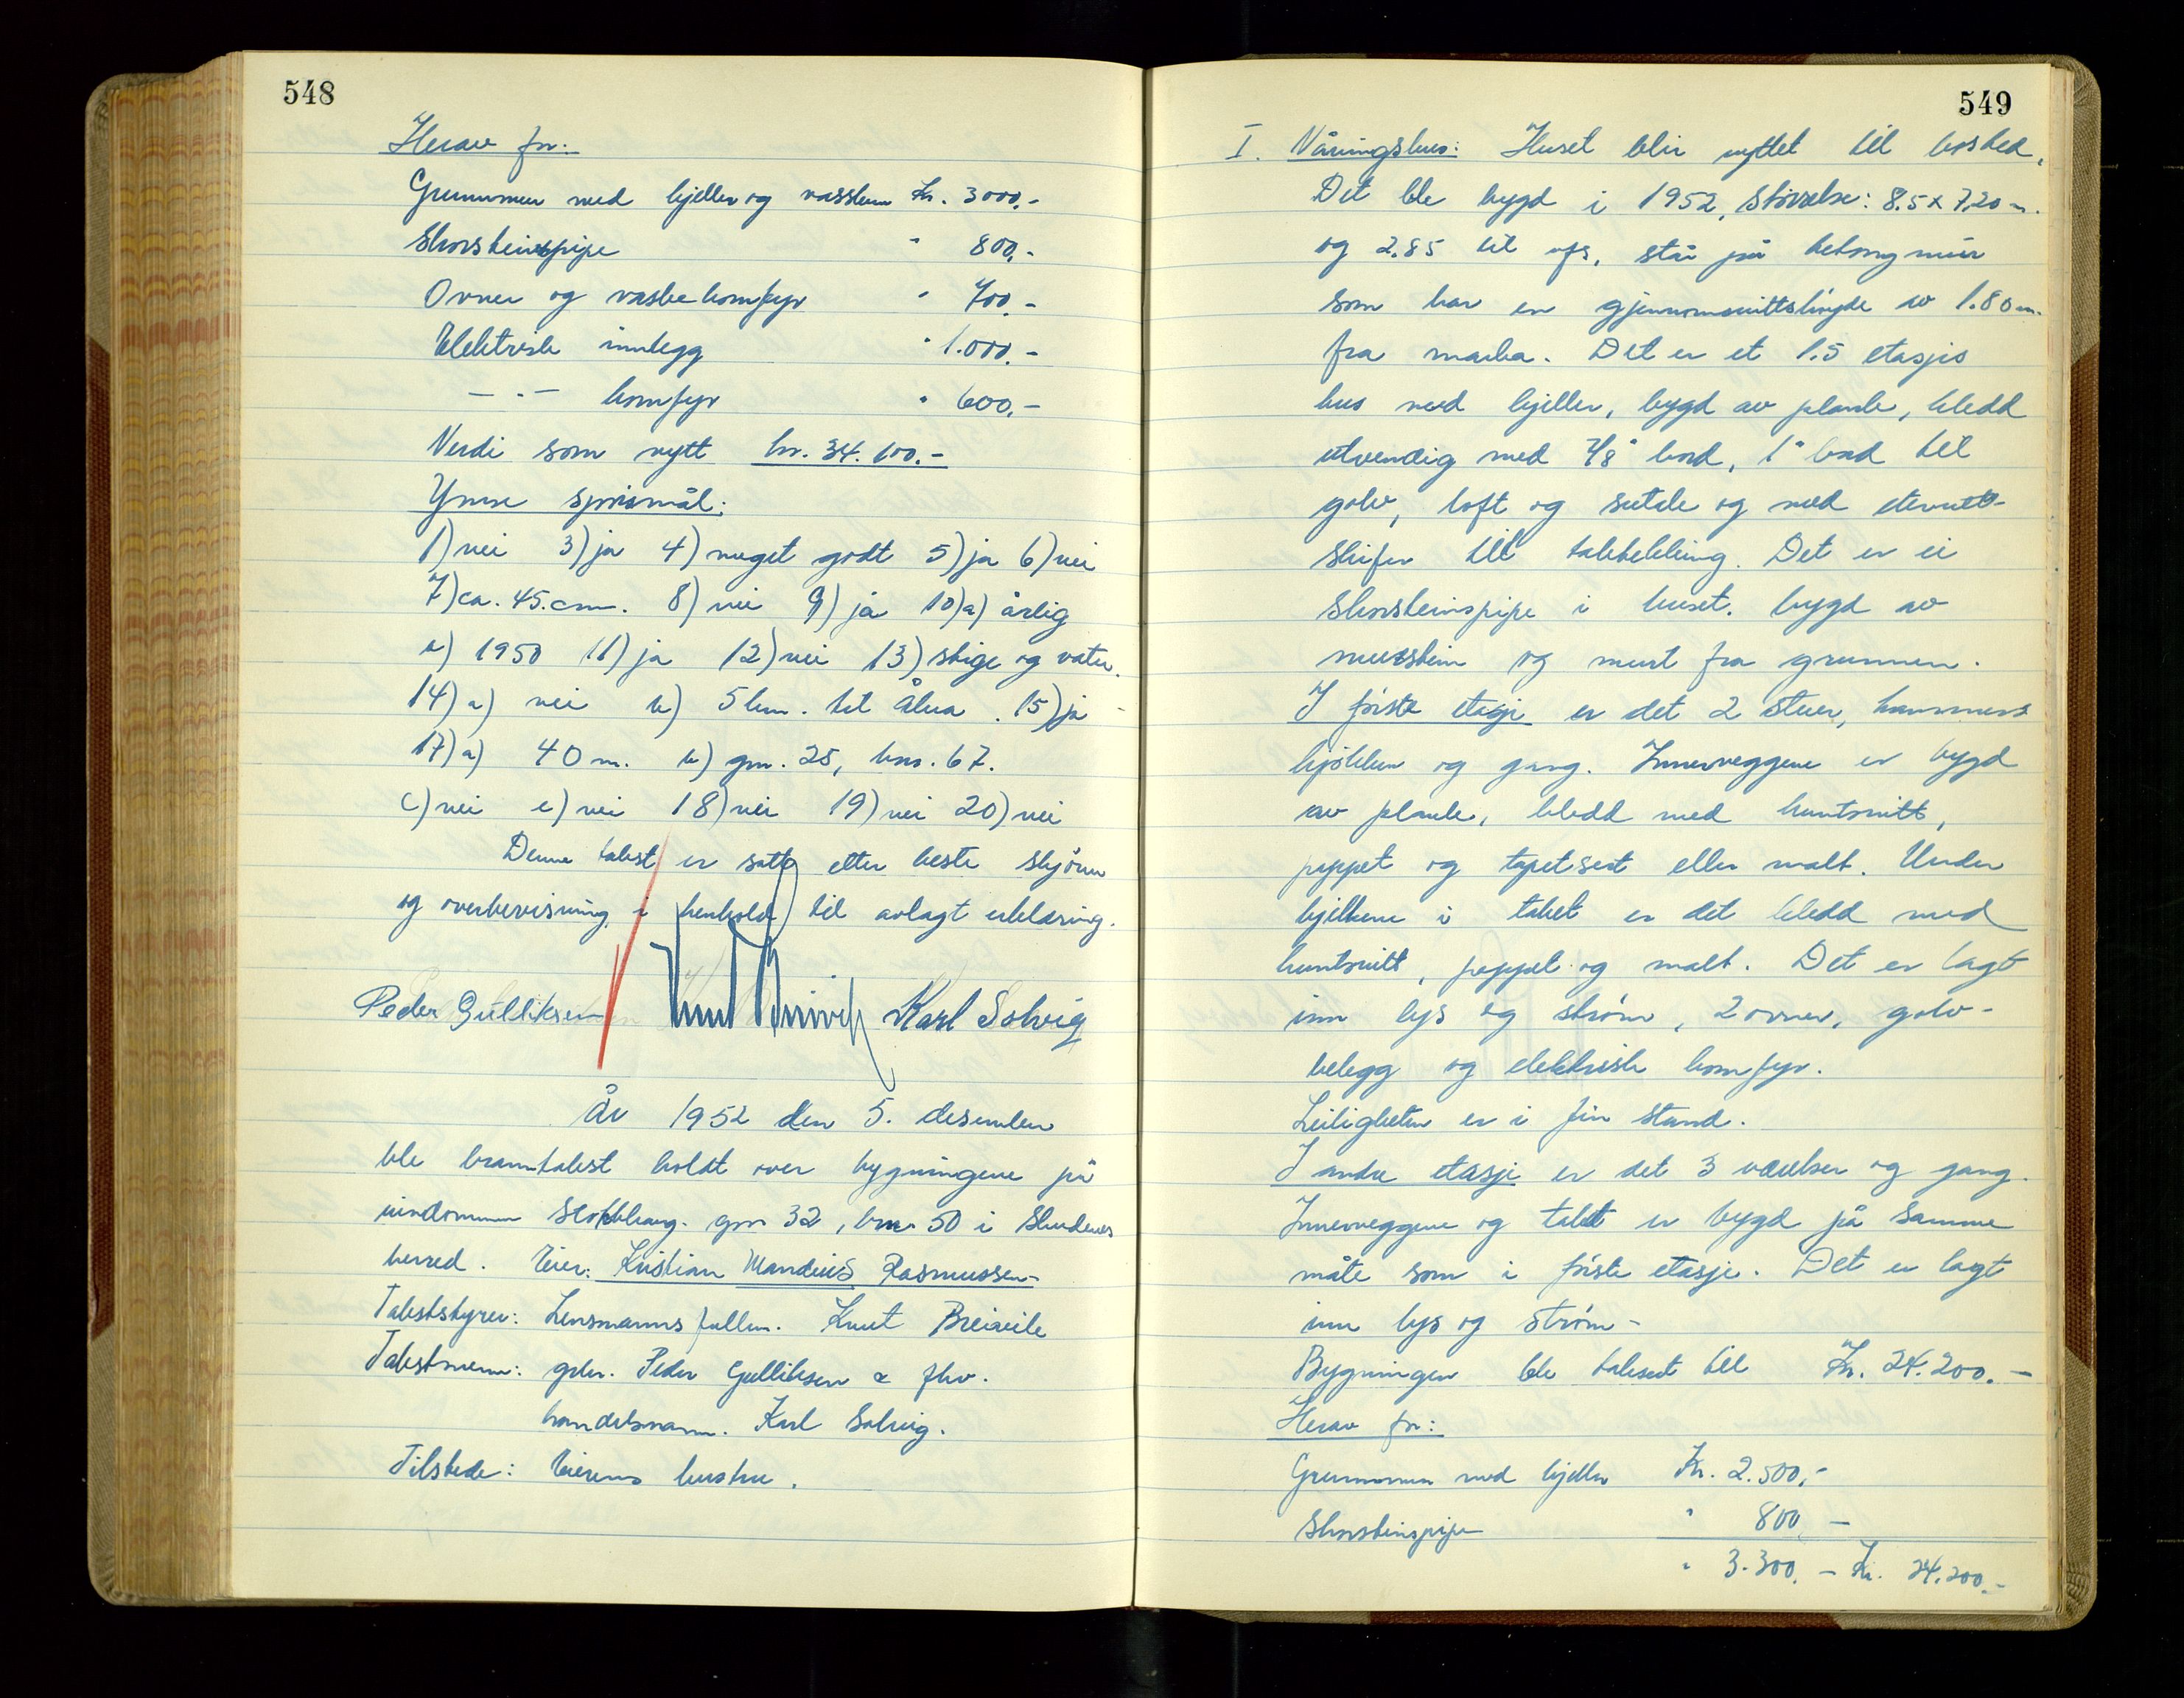 548
Herav for:
Grunnmur med kjeller og vasskum Kr. 3000.-
Skorsteinspipe " 800.-
Ovner og vaskekomfyr " 700.-
Elektrisk innlegg " 1.000.-
— " — komfyr " 600.-
Verdi som nytt kr. 34.100.-
Ymse spörsmål:
1) nei 3) ja 4) meget godt 5) ja 6) nei
7) ca. 45.cm. 8) nei 9) ja 10) a) årlig
b) 1950 11) ja 12) nei 13) stige og vatn.
14) a) nei b) 5 km. til Åkra. 15) ja -
17) a) 40 m. b) gnr. 25, bnr. 67.
c) nei e) nei 18) nei 19) nei 20) nei
Denne takst er satt etter beste skjönn
og overbevisning i henhold til avlagt erklæring.
Peder Gulliksen Knut Breivik Karl Solvig
År 1952 den 5. desember
ble branntakst holdt over bygningene på
eiendommen gnr 32, bnr 50 i Skudenes
herred. Eier: Kristian Mandius Rasmussen-
Takststyrer: Lensmannsfullm. Knut Breivik
Takstmenn: gbr. Peder Gulliksen & fhv.
handelsmann. Karl Solvig.
Tilstede: Eierens hustru.
549
I. Våningshus: Huset blir nyttet til bosted.
Det ble bygd i 1952, størrelse: 8.5 x 7.20 m.
og 2.85 til ofs, står på betongmúr
som har en gjennomsnittshögde av 1.80 m.
fra marka. Det er et 1.5 etasjes
hus med kjeller, bygd av planke, kledd
utvendig med 7/8" bord, 1" bord til
golv, loft og sutak og med eternitt-
skifer till taktekking. Det er ei
skorsteinspipe i huset. bygd av
murstein og murt fra grunnen.
I förste etasje er det 2 stuer, kammers
kjökken og gang. Innerveggene er bygd
av planke, kledd med huntonitt,
pappet og tapetsert eller malt. Under
bjelkene i taket er det kledd med
huntonitt, pappet og malt. Det er lagt
inn lys og ström, 2 ovner, golv-
belegg og elektrisk komfyr.
Leiligheten er i fin stand.
I andre etasje er det 3 værelser og gang.
Innerveggene og taket er bygd på samme
måte som i förste etasje. Det er lagt
inn lys og ström -
Bygningen ble taksert til Kr. 24.200.-
Herav for:
Grunnmuren med kjeller Kr. 2.500,-
Skorsteinspipe " 800, -
" 3.300. - Kr. 24.200.-